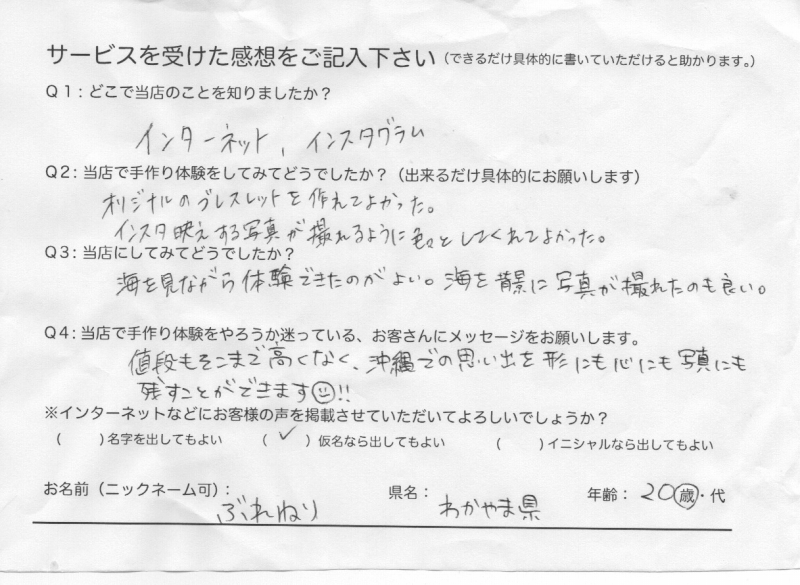 サービスを受けた感想をご記入下さい（できるだけ具体的に書いていただけると助かります。）
Q1：どこで当店のことを知りましたか？
インターネット、インスタグラム
Q2：当店で手作り体験をしてみてどうでしたか？（出来るだけ具体的にお願いします）
オリジナルのブレスレットを作れてよかった。
インスタ映えする写真が撮れるように色々としてくれてよかった。
Q3：当店にしてみてどうでしたか？
海を見ながら体験できたのがよい。海を背景に写真が撮れたのも良い。
Q4：当店で手作り体験をやろうか迷っている、お客さんにメッセージをお願いします。
値段もそこまで高くなく、沖縄での思い出を形にも心にも写真にも
残すことができます☺!!
※インターネットなどにお客様の声を掲載させていただいてよろしいでしょうか？
（　　）名字を出してもよい　（✓）仮名なら出してもよい　（　　）イニシャルなら出してもよい
お名前（ニックネーム可）：ぶれねり　県名：わかやま県　年齢：20歳・代